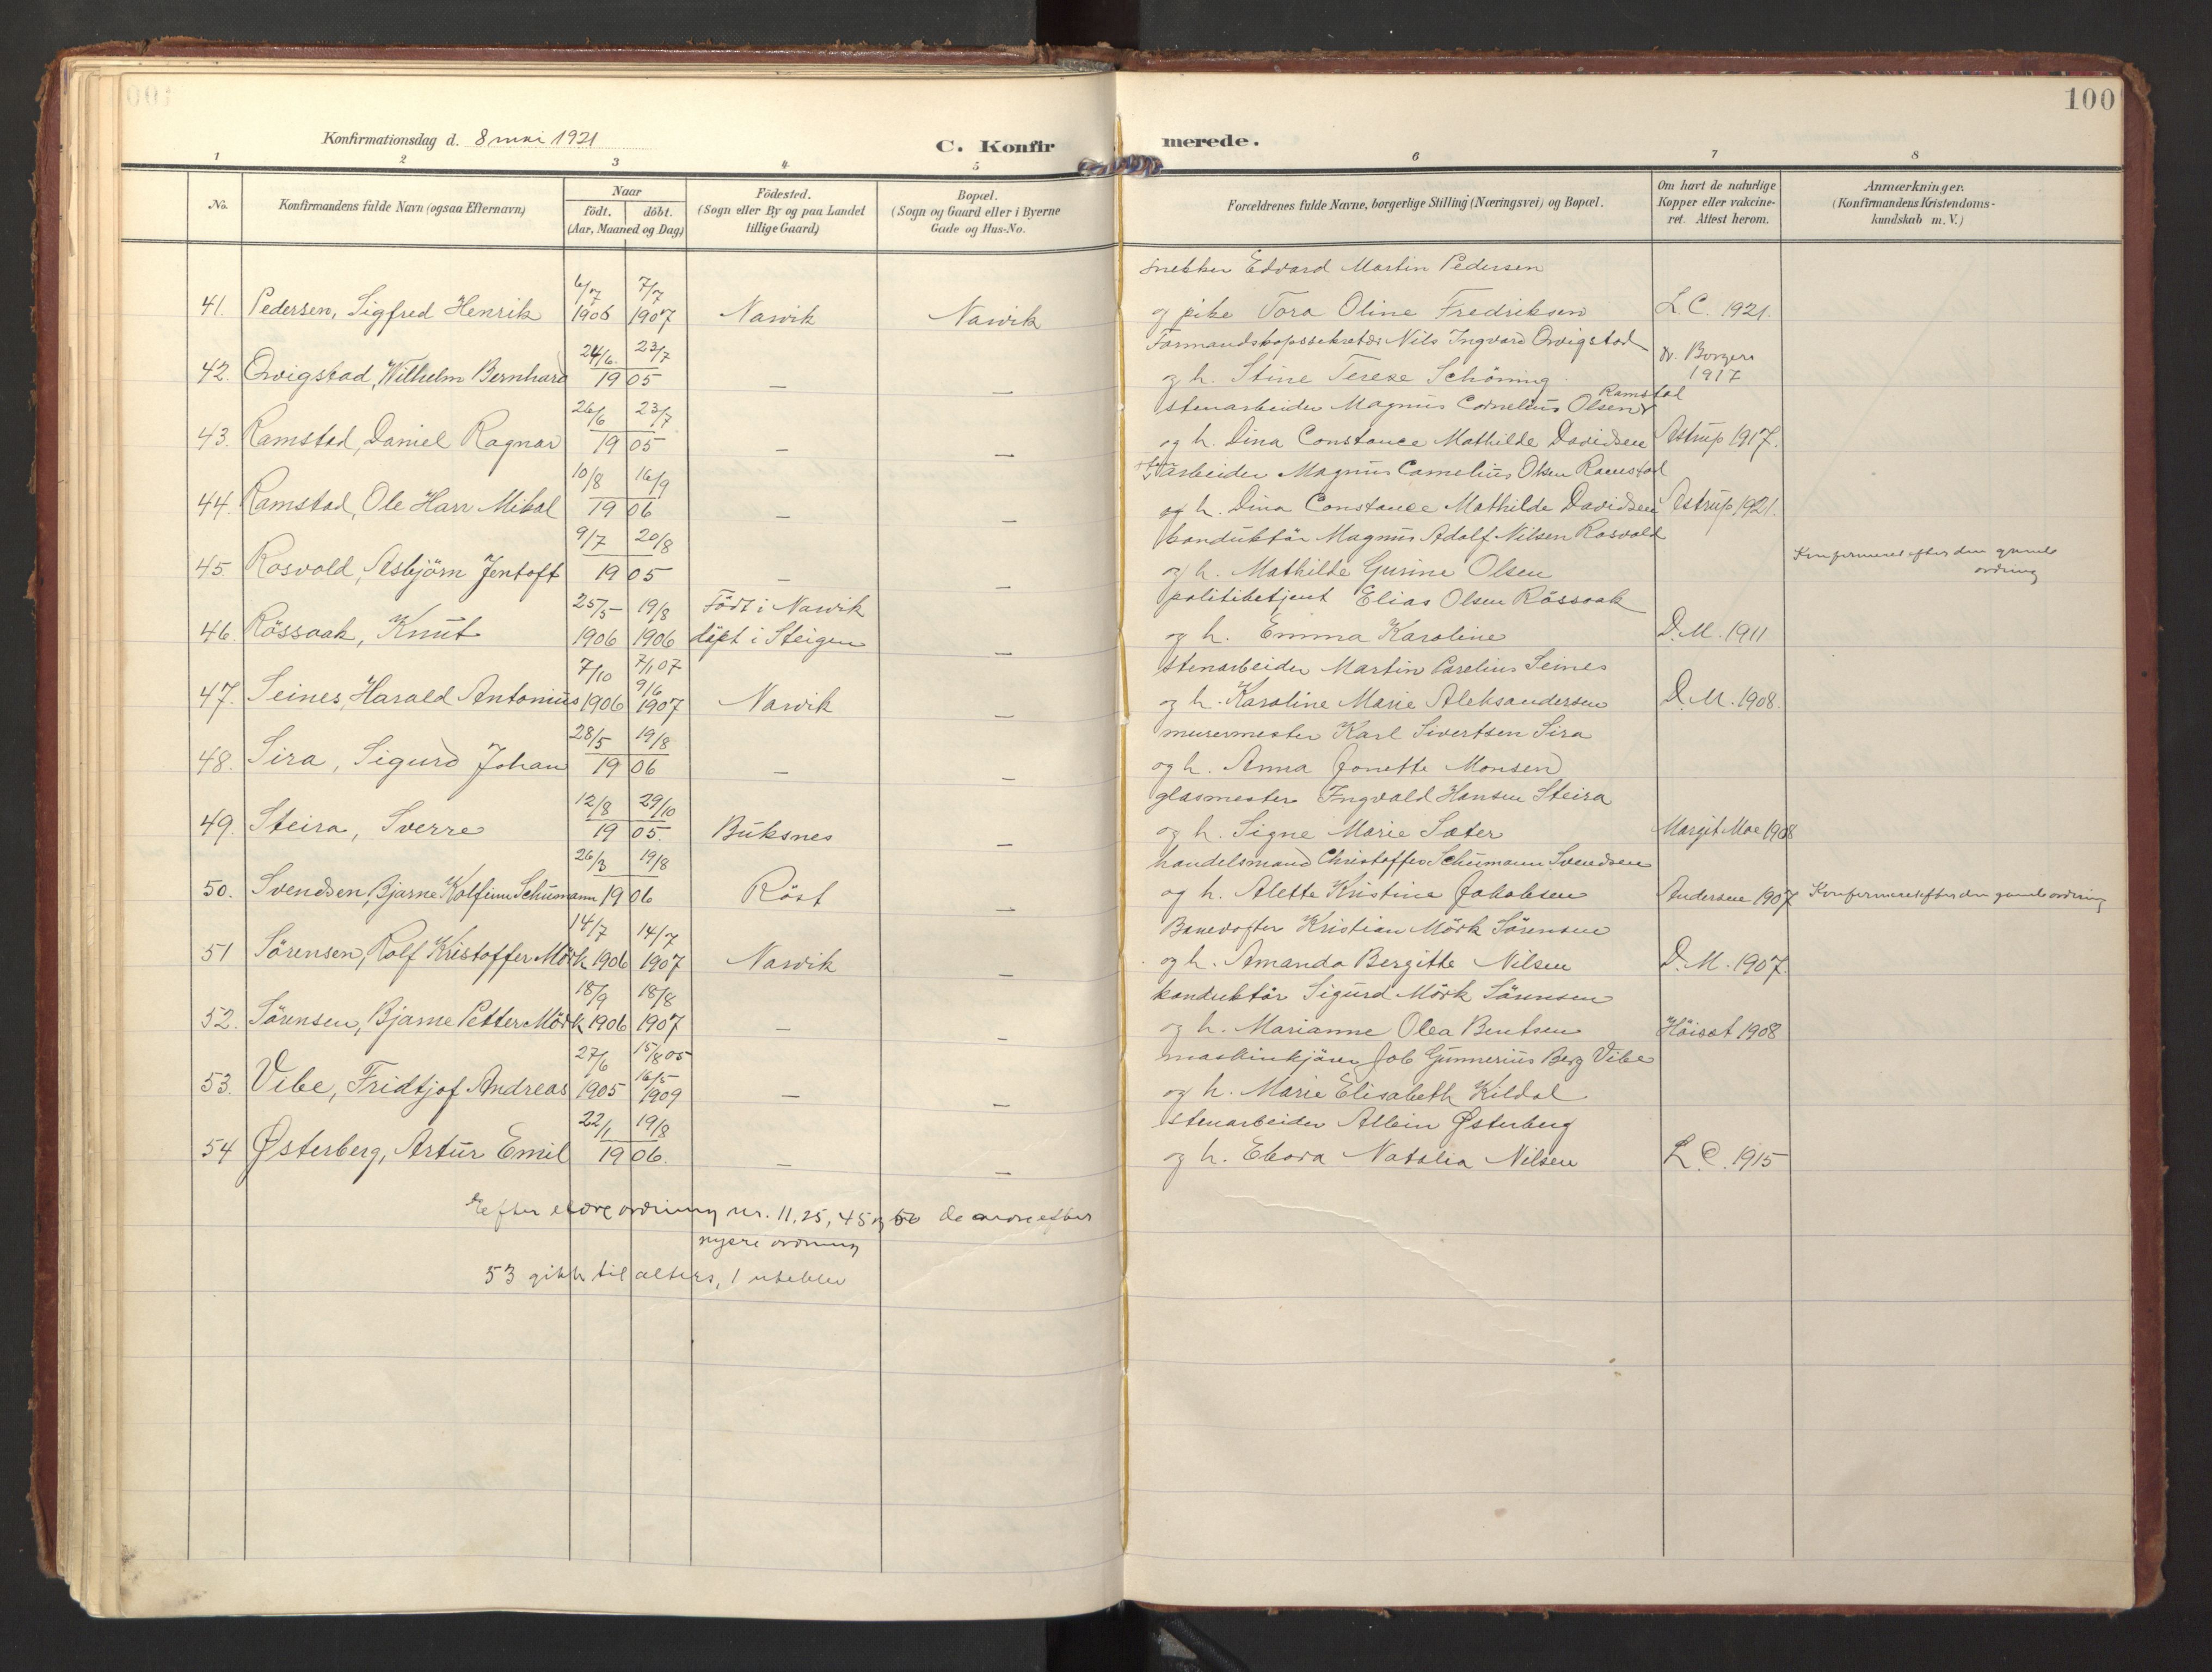 100
Konfirmationsdag d. 8 mai 1921
C. Konfirmerede.
1 2 3 4 5 6 7 8
No. Konfirmandens fulde Navn (ogsaa Efternavn) Naar födt. döbt. (Aar, Maaned og Dag) Födested. (Sogn eller By og paa Landet tillige Gaard) Bopæl. (Sogn og Gaard eller i Byerne Gade og Hus-No. Forældrenes fulde Navne, borgerlige Stilling (Næringsvei) og Bopæl. Om havt de naturlige Kopper eller vakcineret. Attest herom. Anmærkninger. (Konfirmandens Kristendomskundskab m. V.)
6/7 7/7 snekker Edvard Martin Pedersen
41. Pedersen, Sigfred Henrik 1906 1907 Narvik Narvik og pike Tora Oline Fredriksen L. C. 1921.
24/6. 23/7 Formandskapssekretær Nils Ingvard Qvigstad
42. Qvigstad, Wilhelm Bernhard 1905 — — og h. Stine Terese Schöning. dr. Borgen 1917
26/6 23/7 stenarbeider Magnus Cornelius Olsen Ramstad
43. Ramstad, Daniel Ragnar 1905 — — og h. Dina Constance Mathilde Davidsen Astrup 1917.
10/8 16/9 arbeider Magnus Cornelius Olsen Ramstad
44. Ramstad, Ole Harr Mikal 1906 — — og h. Dina Constance Mathilde Davidsen Astrup 1921.
9/7 20/8 konduktör Magnus Adolf Nilsen Rosvold
45. Rosvold, Asbjörn Jentoft 1905 — — og h. Mathilde Gurine Olsen Konfirmeret efter den gamle ordning
25/5 19/8 Födt i Narvik politibetjent Elias Olsen Rössoak
46. Rössoak, Knut 1906 1906 döpt i Steigen — og h. Emma Karoline D. M. 1911
7/10 7/1 07 9/6 stenarbeider Martin Parelius Seines
47. Seines, Harald Antonius 1906 1907 Narvik — og h. Karoline Marie Aleksandersen D. M. 1908.
28/5 19/8 murermester Karl Sivertsen Sira
48. Sira, Sigurd Johan 1906 — — og h. Anna Jonette Monsen
12/8 29/10 glasmester Ingvald Hansen Steira
49. Steira, Sverre 1905. Buksnes — og h. Signe Marie Sæter Margit Moe 1908
26/3 19/8 handelsmand Christoffer Schumann Svendsen
50. Svendsen, Bjarne Kolfinn Schumann 1906 Röst — og h. Alette Kristine Jakobsen Andersen 1907 Konfirmeret efter den gamle ordning
14/7 14/7 Banevogter Kristian Mörk Sörensen
51 Sörensen, Rolf Kristoffer Mörk 1906 1907 Narvik — og h. Amanda Bergitte Nilsen D. M. 1907.
18/9 18/8 konduktör Sigurd Mörk Sörensen
52. Sörensen, Bjarne Petter Mörk 1906 1907 — — og h. Marianne Olea Bentsen Höisæt 1908
27/6 15/8 05 16/5 maskinkjörer Job Gunnerius Berg Vibe
53. Vibe, Fridtjof Andreas 1905 1909 — — og h. Marie Elisabeth Kildal
22/1 19/8 stenarbeider Albin Østerberg
54 Østerberg, Artur Emil 1906. — — og h. Ebora Natalia Nilsen L. C. 1915
Efter eldre ordning nr. 11, 25, 45 og 50 de andre efter
nyere ordning
53 gikk til alters, 1 uteblev